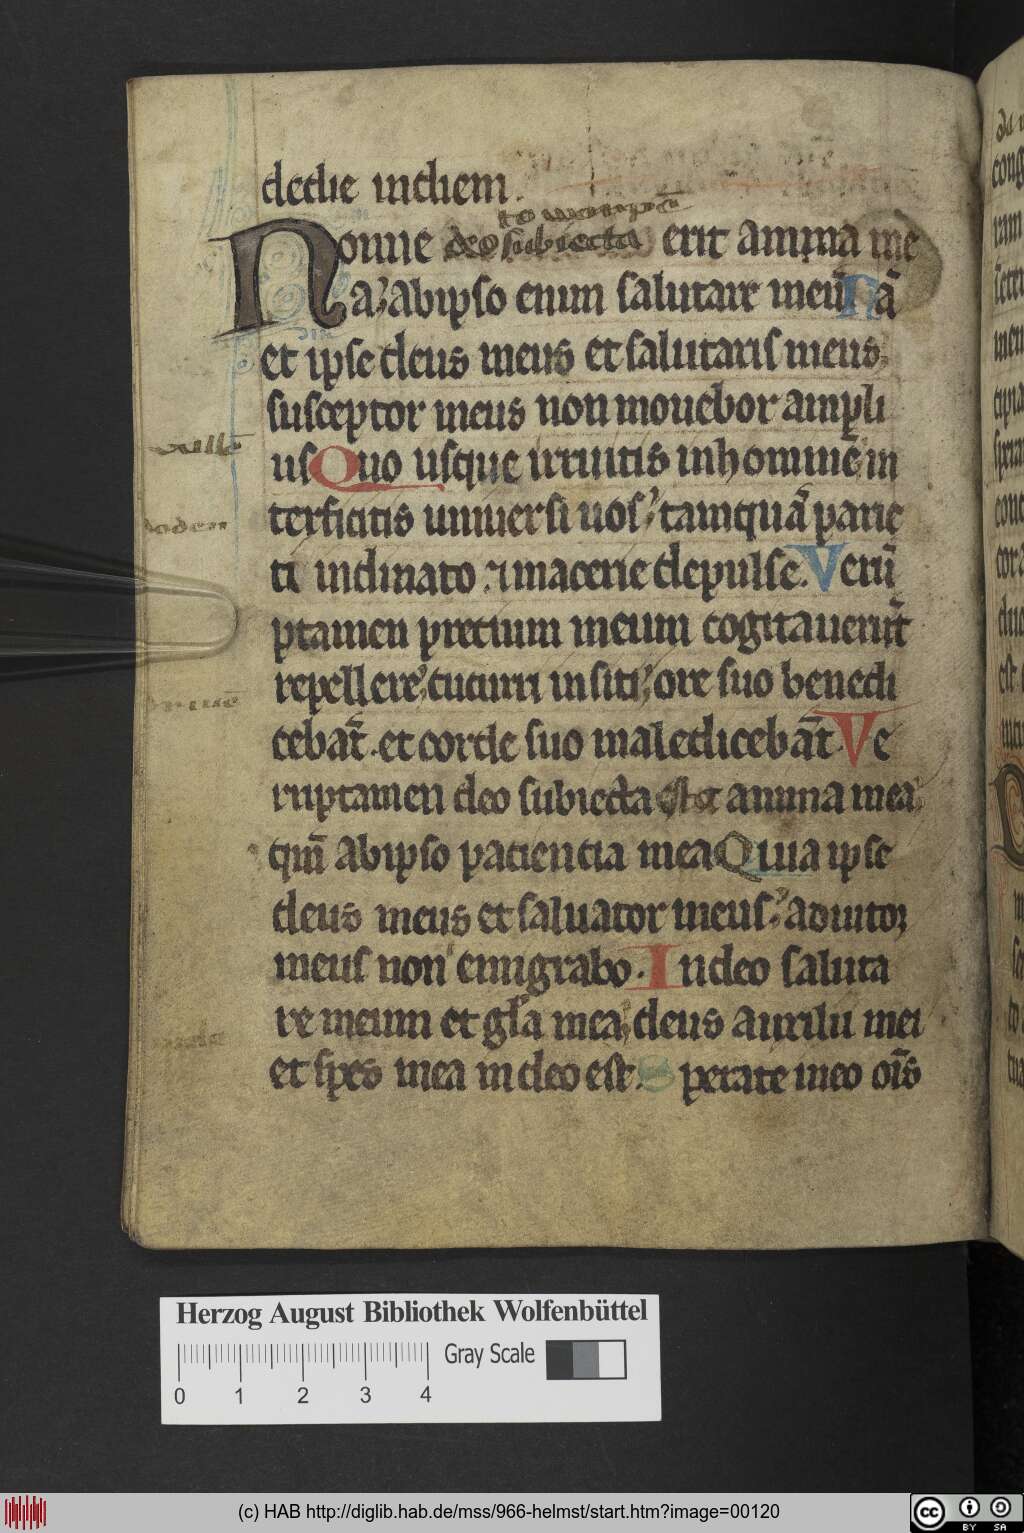 dedie indiem
to worpē
Nonne deo subiecta erit anima me
a? ab ipso enim salutare meū Nā
et ipse deus meus et salutaris meus,
susceptor meus non mouebor ampli
us Quo usque irruitis in homine in
terficitis uniuersi uos, tamquā parie
ti inclinato ⁊ macerie depulse. Verū
ptamen precium meum cogitauerūt
repellere, cucurri in siti, ore suo benedi
cebāt. et corde suo maledicebāt Ve
ruptamen deo subiecta esto anima mea,
qm̄ ab ipso paciencia mea Quia ipse
deus meus et saluator meus, adiutor
meus non emigrabo. In deo saluta
re meum et gl̄a mea, deus auxilii mei
et spes mea in deo est. Sperate in eo oīs
Herzog August Bibliothek Wolfenbüttel
0 1 2 3 4
Gray Scale
(c) HAB http://diglib.hab.de/mss/966-helmst/start.htm?image=00120
cc BY SA